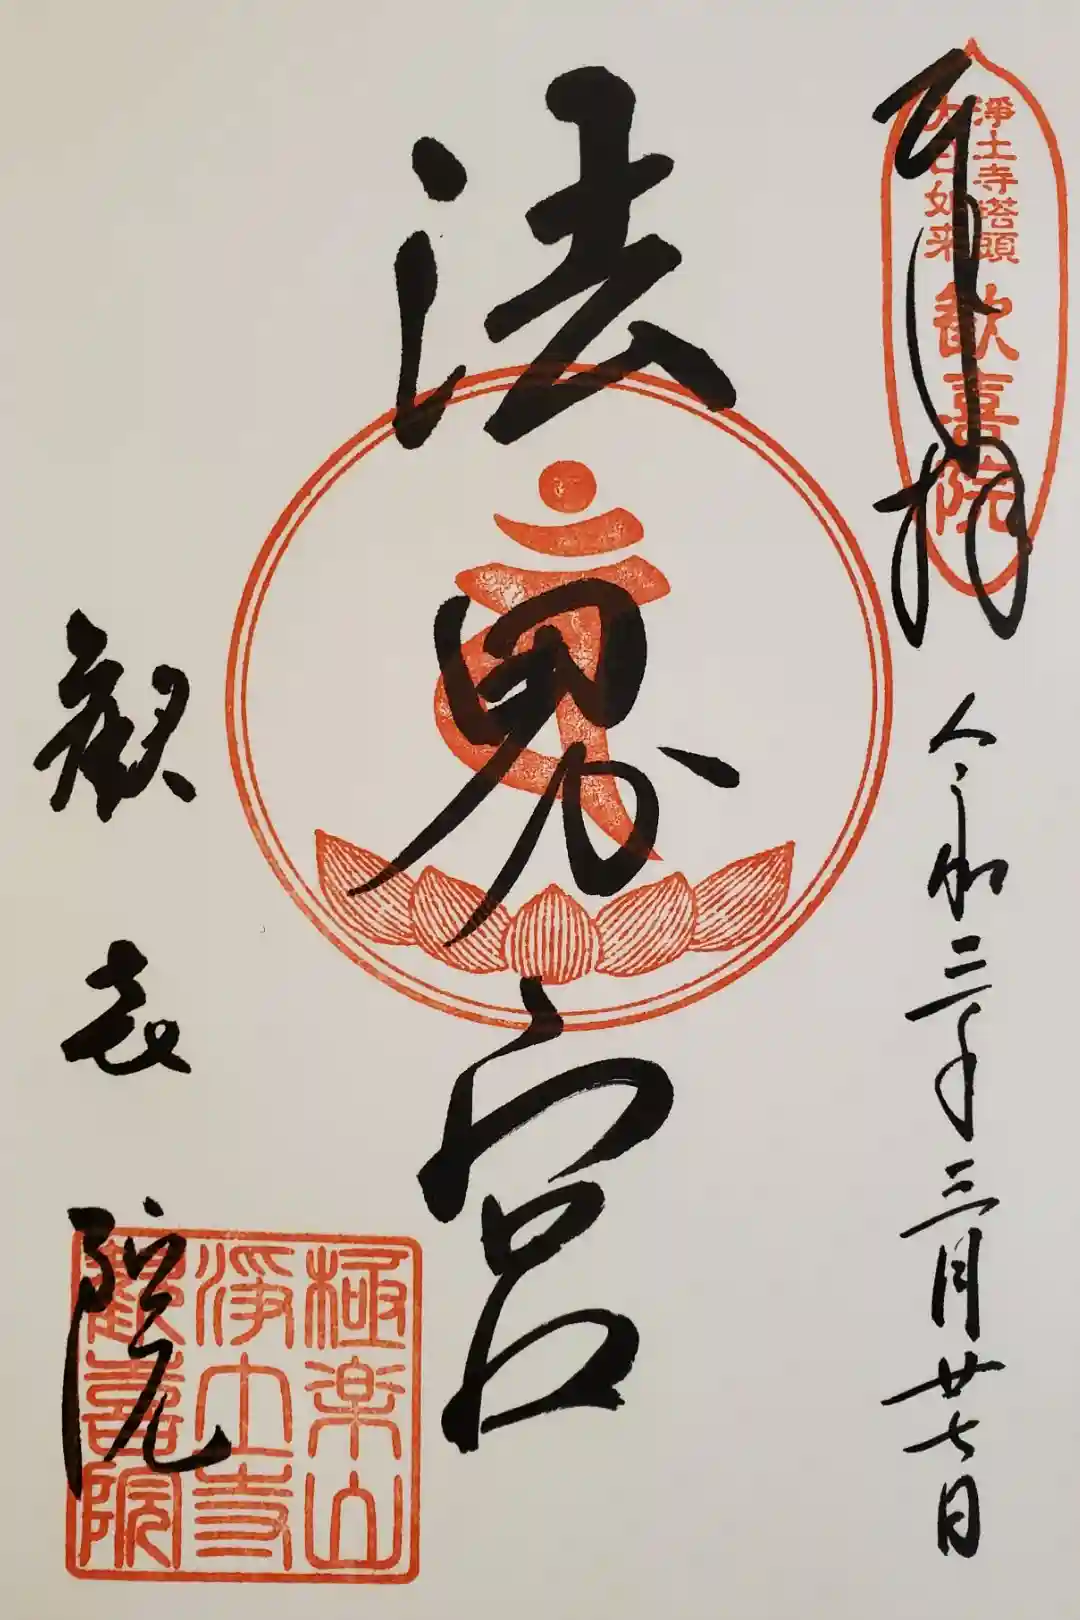 奉拝
淨土寺塔頭
大日如来
歓喜院
令和三年三月廿七日
法界宮
歓喜院
極楽山
淨土寺
歡喜院